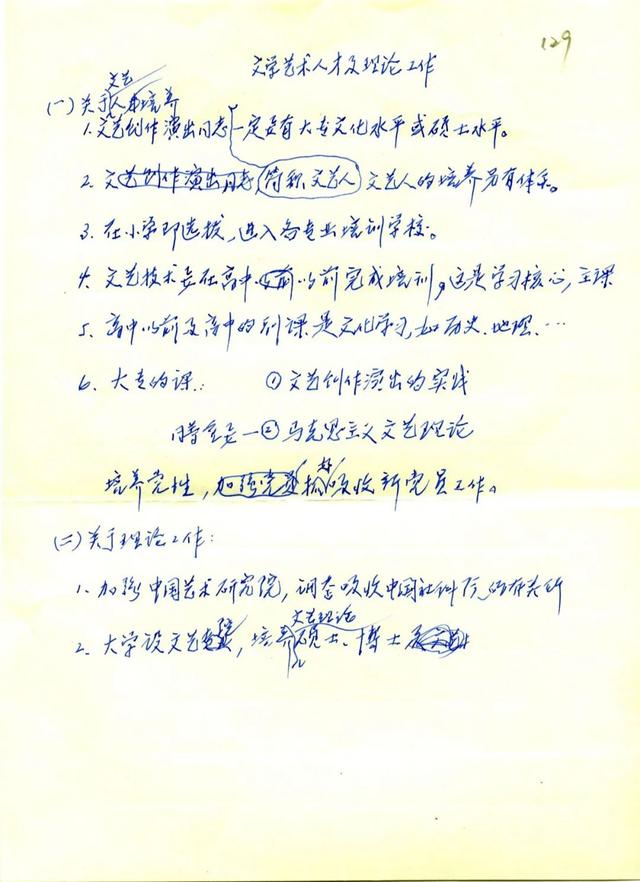 129
文学艺术人才及理论工作
文艺
(一)关于人才培养
1.文艺创作演出同志一定要有大专文化水平或硕士水平。
2.文艺创作演出同志,简称文艺人 文艺人的培养另有体系。
3.在小学即选拔,进入各专业培训学校。
4.文艺技术要在高中以前以前完成培训,这是学习核心,主课
5.高中以前及高中的副课是文化学习,如历史、地理、…
6.大专的课: ①文艺创作演出的实践
②马克思主义文艺理论
培养党性,加强党 抓好吸收新党员工作。
(二)关于理论工作:
1.加强中国艺术研究院,调整吸收中国社科院的有关所
文艺理论
2.大学设文艺,培养硕士、博士